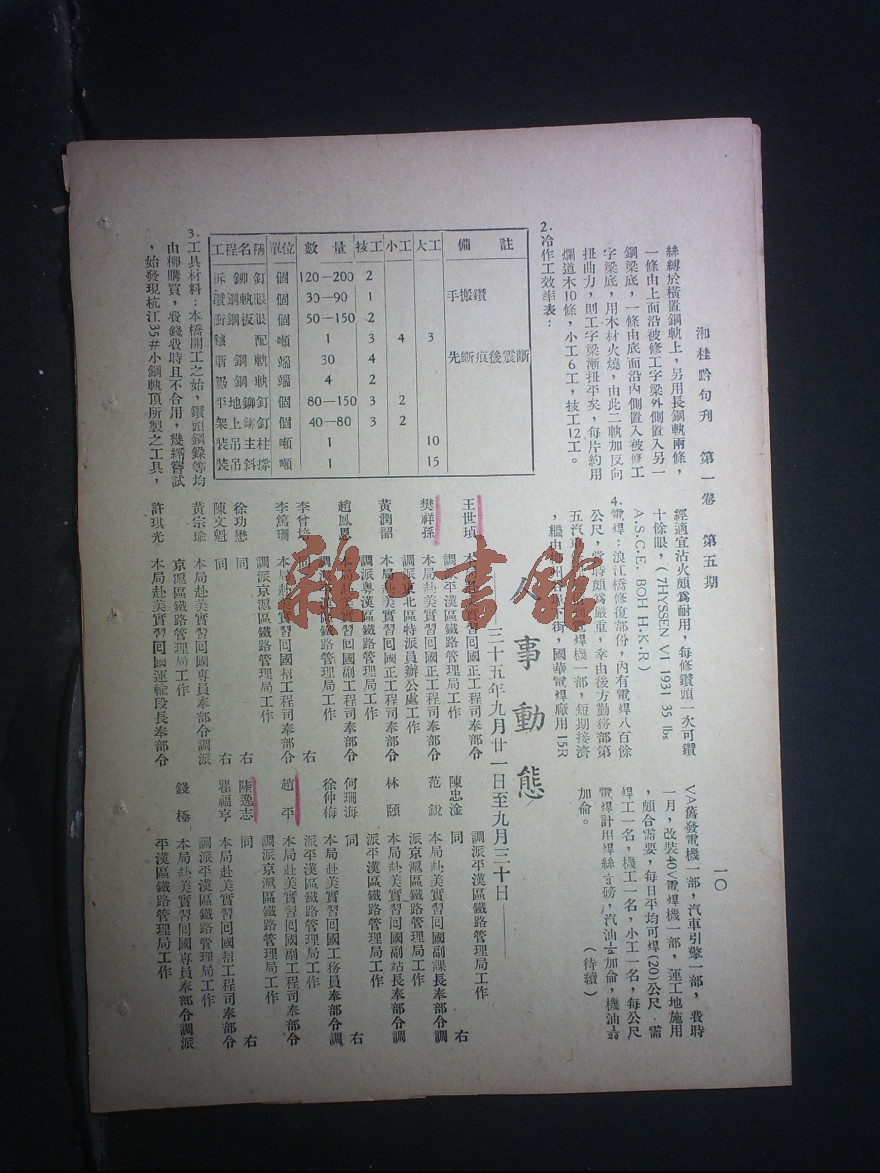 湘桂黔旬刊　第一卷　第五期
一〇
絲縛於橫置鋼軌上，另用長鋼軌兩條，
一條由上面沿被修工字梁外側置入另一
鋼梁底，一條由底面沿內側置入被修工
字梁底，用木材火燒，由此二軌加反向
扭曲力，則工字梁漸扭平矣，每片約用
爛道木10條，小工6工，技工12工。
2.冷作工效率表：
工程名稱 單位 數量 技工 小工 大工 備註
拆鉚釘 個 120—200 2
鑽鋼軌眼 個 30—90 1 手搬鑽
鋼板眼 個 50—150 2
配 噸 1 3 4 3
鋼軌 端 30 4 先斷痕後震斷
鋼軌 端 4 2
平地鉚釘 個 80—150 3 2
架上鉚釘 個 40—80 3 2
裝吊主柱 噸 1 10
裝吊斜撐 噸 1 15
3.工具材料：本橋開工之始，鑽頭鋼鏍等均
由柳購買，費錢費時且不合用，幾經嘗試
，始發現杭江35#小鋼軌頂所製之工具，
經適宜沾火頗爲耐用，每修鑽頭一次可鑽
十餘眼，(7HYSSEN V1 1931 35 lbs
A.S.C.E. BOH H.K.R)
4.電焊：浪江橋修復部份，內有電焊八百餘
公尺，當時頗爲嚴重，幸由後方勤務部第
五汽車電焊機一部，短期接濟
，繼由街，國華電焊廠用15R
VA舊發電機一部，汽車引擎一部，費時
一月，改裝40V電焊機一部，運工地施用
，頗合需要，每日平均可焊(20)公尺，需
焊工一名，機工一名，小工一名，每公尺
電焊計用焊絲磅，汽油加侖，機油
加侖。　　（待續）
人事動態
——三十五年九月廿一日至九月三十日——
王世瑱　本局赴美實習回國正工程司奉部令
調派平漢區鐵路管理局工作
樊祥孫　本局赴美實習回國正工程司奉部令
調派東北區特派員辦公處工作
黃潤韶　本局赴美實習回國正工程司奉部令
調派粵漢區鐵路管理局工作
趙鳳恩　本局赴美實習回國副工程司奉部令
調派區鐵路管理局工作
李曾培　同　右
李篤珊　本局赴美實習回國幫工程司奉部令
調派京滬區鐵路管理局工作
徐功懋　同　右
陳文魁　同　右
黃宗瑜　本局赴美實習回國專員奉部令調派
京滬區鐵路管理局工作
許琪光　本局赴美實習回國運輸段長奉部令
調派平漢區鐵路管理局工作
陳忠淦　同　右
范銳　本局赴美實習回國副課長奉部令調
派京滬區鐵路管理局工作
林頤　本局赴美實習回國副站長奉部令調
派平漢區鐵路管理局工作
何珊海　同　右
徐仲梅　本局赴美實習回國工務員奉部令調
派平漢區鐵路管理局工作
趙平　本局赴美實習回國副工程司奉部令
調派京滬區鐵路管理局工作
陸逸志　同　右
瞿福亨　本局赴美實習回國幫工程司奉部令
調派平漢區鐵路管理局工作
錢極　本局赴美實習回國專員奉部令調派
平漢區鐵路管理局工作
雜·書館